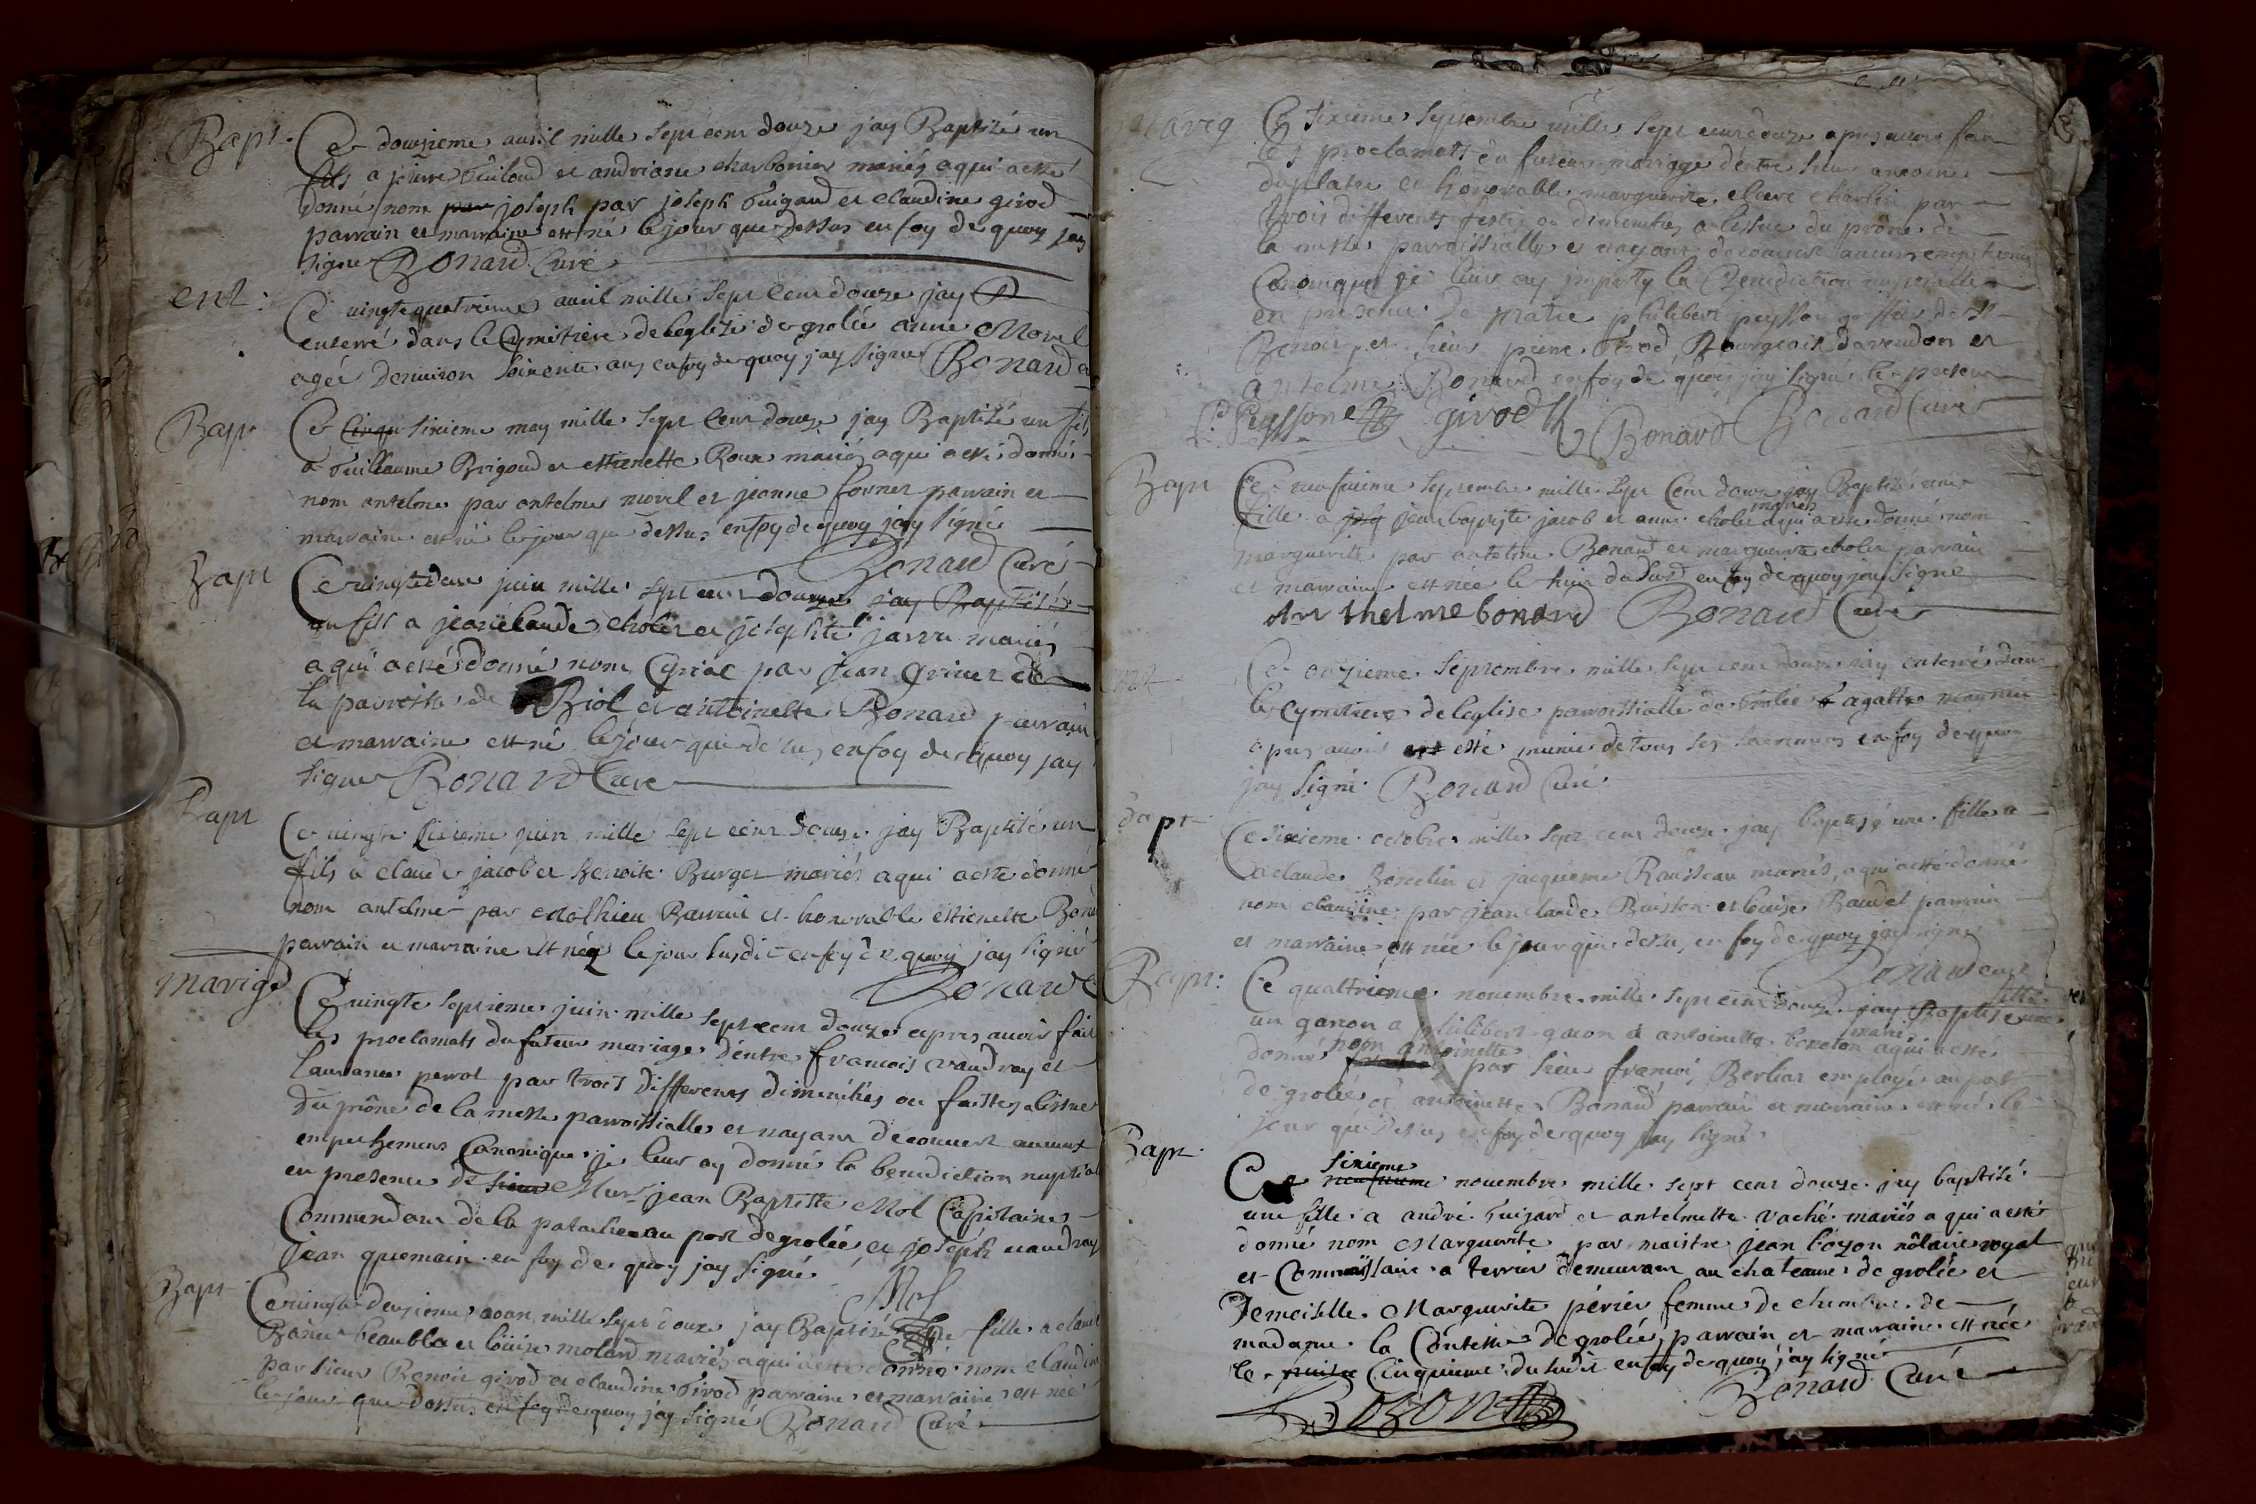 Bapt.
Ce douzieme auril mille sept cent douze jay Baptizé un
fils a pierre Guiloud et andriane charbonier mariés aqui a esté
donné nom par joseph par joseph Guigaud et Claudine girod
parrain et marraine est né le jour que dessus en foy de quoy jay
signe Bonard Curé
ent:
Ce vingtequatrieme auril mille sept cent douze jay
enterré dans le Cymitiere de leglise de grolée anne Morel
agée denuiron soixente ans en foy de quoy jay signe Bonard
Bapt
Ce Cinqu sixieme may mille sept Cent douze jay Baptisé un fils
a Guillaume Brigoud et estienette Roux mariés aqui a esté donné
nom antelme par antelme morel et jeanne fornet parrain et
marraine est né le jour que dessus en foy de quoy jay signé
Bonard Curé
Bapt
Ce vingtedeux juin mille sept cent douze jay Baptisé
un fils a jean claude choler et josephte jarru mariés
aqui a esté donné nom Cyriac par jean Grinet de
la parroisse de Biol et antoinette Bonard parrain
et marraine est né le jour que dessus en foy de quoy jay
signe Bonard Curé
Bapt
Ce vingte sixieme juin mille sept cent douze jay Baptisé un
fils a claude jacob et Benoite Burget mariés aqui a esté donné
nom antelme par Mathieu et honorable estienette
parrain et marraine est né le jour susdit en foy de quoy jay signé
Bonard
marige
Ce vingte septieme juin mille sept cent douze apres auoir fait
les proclamats du futeur mariage dentre francois vaudray et
perrot par trois differents dimenches ou festes a lissue
du prône de la messe parroissialle et nayant decouuert aucuns
empechemens Canonique je leur ay donné la benediction nuptial
en presence de sieur jean Baptiste Mol Capitaine
Commendant de la patache au port de grolée et joseph vaudray
jean guemain en foy de quoy jay signé
Mol
Bapt
Ce vingte deuzieme aoust mille sept douze jay Baptizé fille a
beaubla et loüise molard mariés aqui a esté donné nom claudine
par sieur Benoit girod et claudine Girod parraine et marraine est née
le jour que dessus en foy de quoy jay signé Bonard Curé
Ce sixieme septembre mille sept cent douze apres auoir fait
les proclamats du futeur mariage dentre sieur antoine
duplatre et honorable marguerite charlin par
trois differents festes ou dimenches a lissue du prône de
la messe parroissialle et nayant decouuert aucuns empechemens
Canonique je leur ay imparty la Benediction nuptialle
en presence de maitre philibert peysson greffier de st
Benoit et sieur pierre Girod Bourgeois et
antelme Bonard en foy de quoy jay signé
Peysson girod Bonard Bonard Curé
Bapt
Ce neufuieme septembre mille sept Cent douze jay Baptizé une
mariés
fille a jean baptiste jacob et anne choler aqui a esté donné nom
marguerite par antelme Bonard et marguerite choler parrain
et marraine est née le huit du susd en foy de quoy jay signe
An thelme bonard Bonard Curé
ent
Ce onzieme septembre mille sept cent douze jay enterré dans
le Cymitiere de leglise parroissialle de Grolée agathe
apres auoir esté munie de tous ses sacremens en foy de quoy
jay signé Bonard Curé
Bapt
Ce sixieme octobre mille sept cent douze jay baptisé une fille
a claude et jacqueme Rousseau mariés, aqui a esté donné
nom claudine par jean claude Buisson et loüise Baudet parrain
et marraine est née le jour que dessus, en foy de quoy jay signé
Bonard curé
Bapt:
Ce quattrieme nouembre mille sept cent douze jay Baptisé une fille
un garcon a philibert et antoinette aqui a esté
mariés
donné nom antoinette par sieur francois Berliat employé au port
de grolée et antoinette Bonard parrain et marraine est né le
jour que dessus en foy de quoy jay signé
Bapt.
sixieme
Ce neufuieme nouembre mille sept cent douze jay baptisé
une fille a andré Guigard et antelmette vaché mariés a qui a esté
donné nom Marguerite par maistre jean bozon nôtaire royal
et Commissaire a terrier demeurant au chateaux de grolée et
Demoiselle Marguerite périer femme de chambre de
madame la Contesse de grolée, parrain et marraine est née
le huitie Cinquieme dusudit en foy de quoy jay signé
Bonard Curé
Bozon